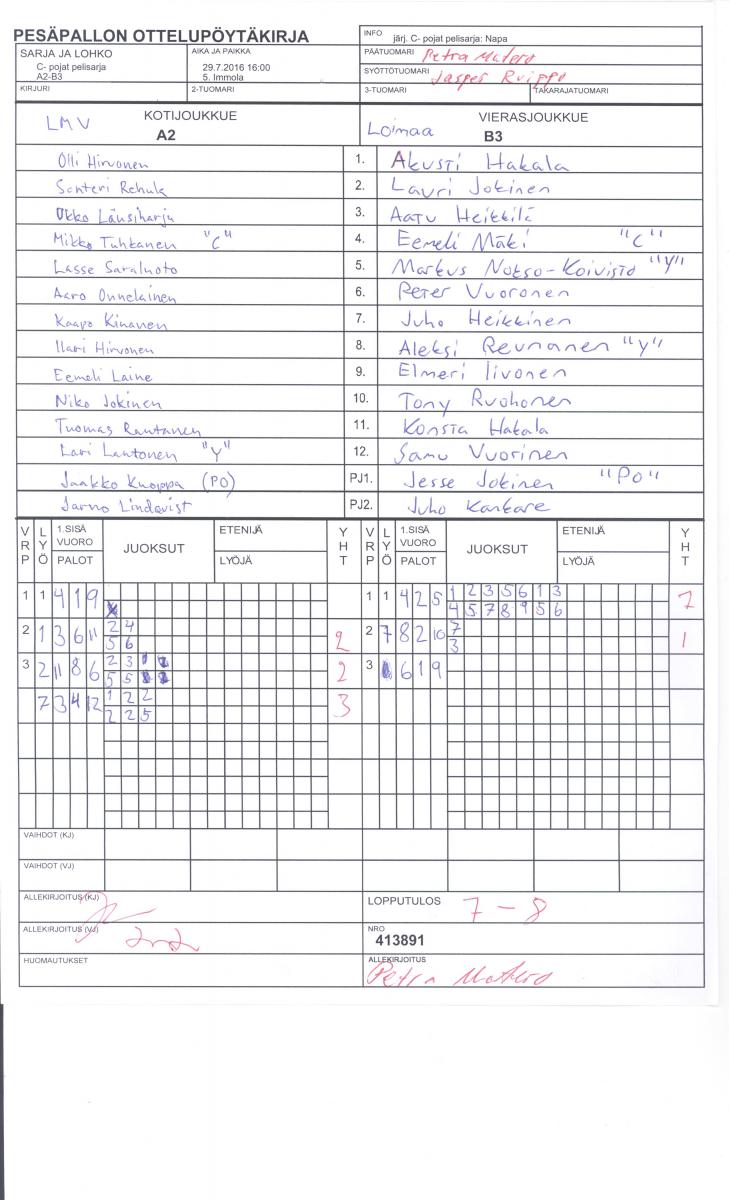 PESÄPALLON OTTELUPÖYTÄKIRJA
INFO järj. C- pojat pelisarja: Napa
SARJA JA LOHKO
C- pojat pelisarja
A2-B3
AIKA JA PAIKKA
29.7.2016 16:00
5. Immola
PÄÄTUOMARI Petra Matero
SYÖTTÖTUOMARI Jasper
KIRJURI 2-TUOMARI 3-TUOMARI TAKARAJATUOMARI
LMV KOTIJOUKKUE A2 Loimaa VIERASJOUKKUE B3
Olli Hirvonen 1. Akusti Hakala
Santeri Rehula 2. Lauri Jokinen
Okko Länsiharju 3. Aatu Heikkilä
Mikko Tuhkanen "C" 4. Eemeli Mäki "C"
Lasse Saraluoto 5. Markus Nokso-Koivisto "Y"
Aaro Onnelainen 6. Peter Vuoronen
Kaapo Kinanen 7. Juho Heikkinen
Ilari Hirvonen 8. Aleksi Reunanen "Y"
Eemeli Laine 9. Elmeri Iivonen
Niko Jokinen 10. Tony Ruohonen
Tuomas Rautanen 11. Konsta Hakala
Lari Lantonen "Y" 12. Samu Vuorinen
Jaakko Kuoppa (PO) PJ1. Jesse Jokinen "PO"
Jarno Lindqvist PJ2. Juho Kankare
VRP LYÖ 1.SISÄ VUORO PALOT JUOKSUT ETENIJÄ LYÖJÄ YHT VRP LYÖ 1.SISÄ VUORO PALOT JUOKSUT ETENIJÄ LYÖJÄ YHT
1 1 4 1 9 1 1 4 2 5 1 2 3 5 6 1 3 7
4 5 7 8 9 5 6
2 1 3 6 11 2 4 2 2 7 8 2 10 7 1
5 6 3
3 2 11 8 6 2 3 2 3 6 1 9
5 5
7 3 4 12 1 2 2 3
2 2 5
VAIHDOT (KJ)
VAIHDOT (VJ)
ALLEKIRJOITUS (KJ) LOPPUTULOS 7 - 8
ALLEKIRJOITUS (VJ) NRO 413891
HUOMAUTUKSET ALLEKIRJOITUS Petra Matero